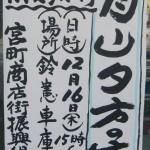 山夕方
日時 12月16日(木)15時
場所 鈴憲車庫
宮町商店街振興組